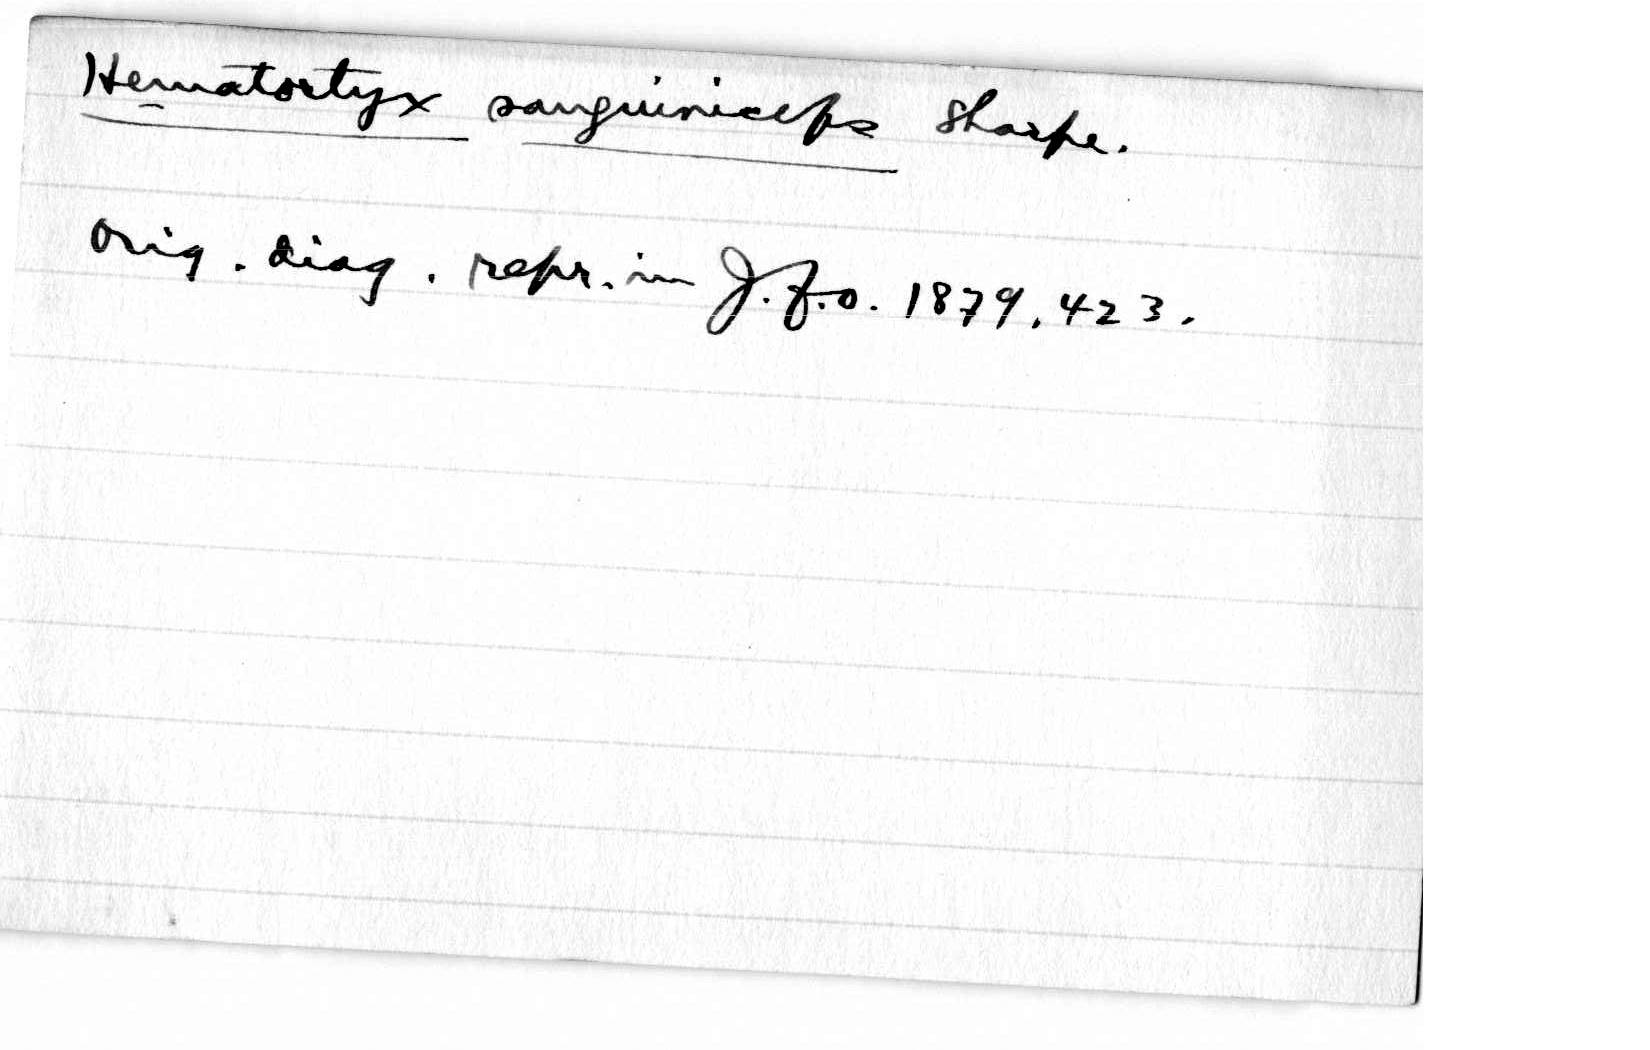 Hematortyx sanguiniceps Sharpe.
Orig. diag. repr. in J.f.O. 1879, 423.